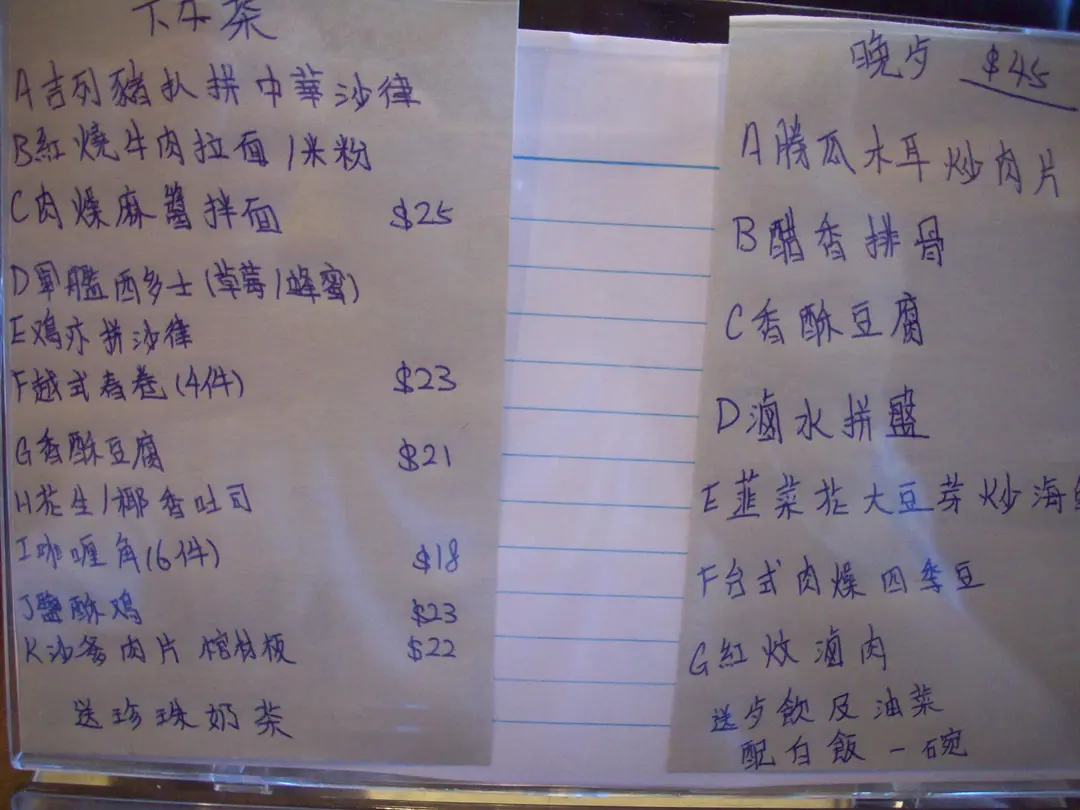 下午茶
A吉列豬扒拼中華沙律
B紅燒牛肉拉面/米粉
C肉燥麻醬拌面 $25
D軍艦西多士(草莓/蜂蜜)
E鸡亦拼沙律
F越式春卷(4件) $23
G香酥豆腐 $21
H花生/椰香吐司
I咖喱角(6件) $18
J鹽酥鸡 $23
K沙爹肉片棺材板 $22
送珍珠奶茶
晚歺 $45
A勝瓜木耳炒肉片
B醋香排骨
C香酥豆腐
D滷水拼盤
E韮菜花大豆芽炒海
F台式肉燥四季豆
G紅炆滷肉
送歺飲及油菜
配白飯一碗